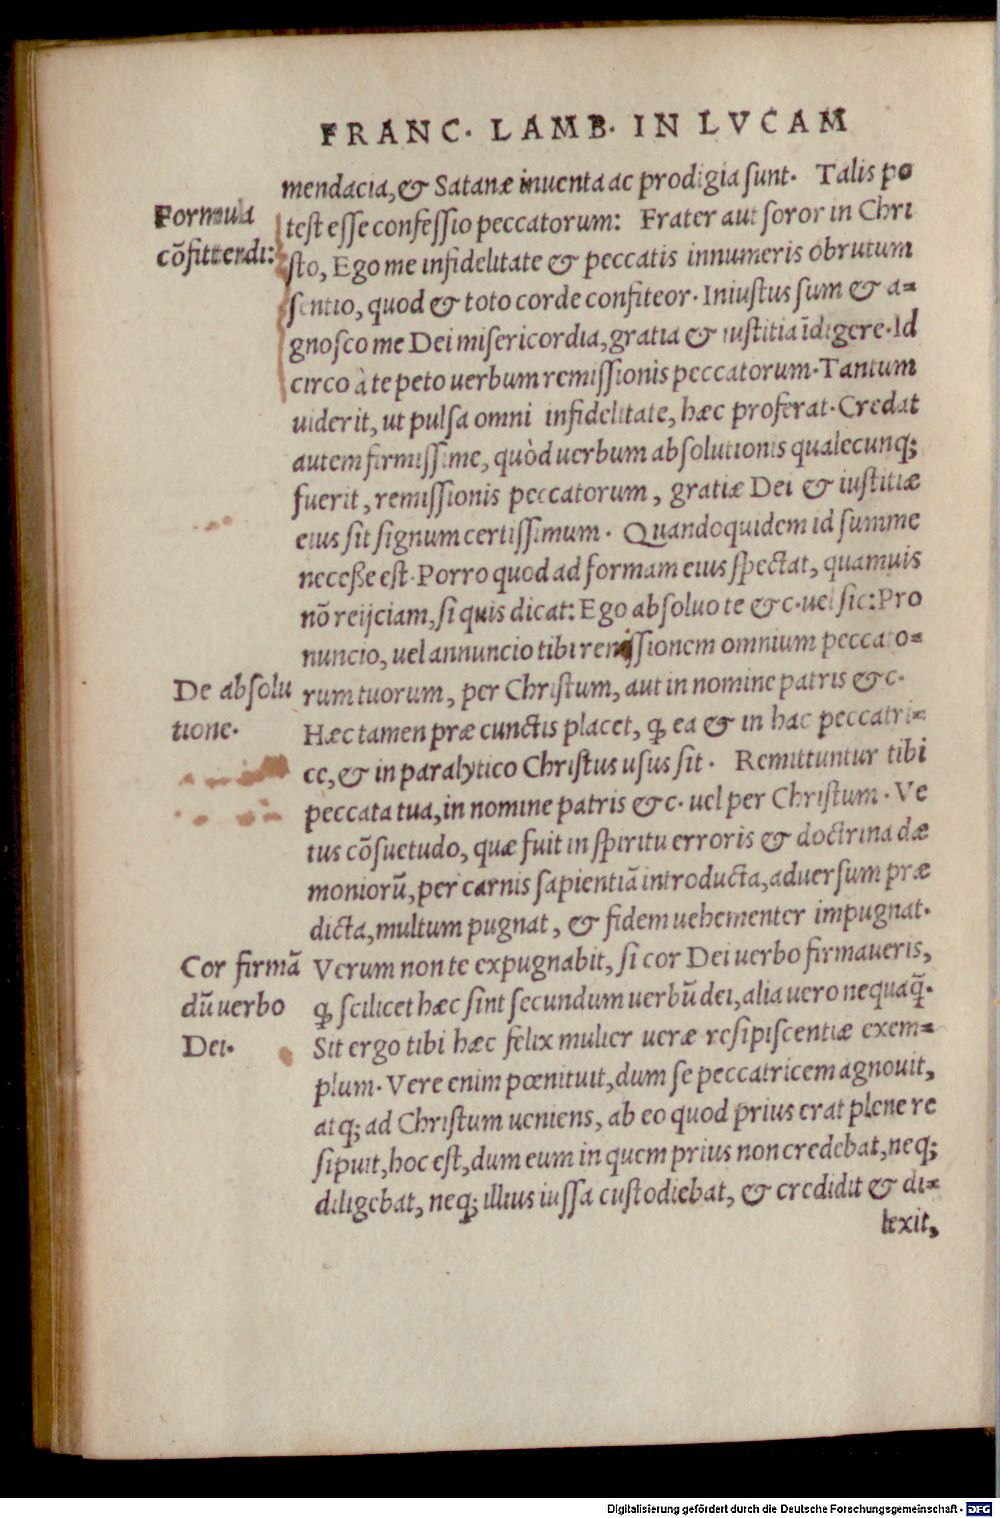 FRANC. LAMB. IN LVCAM
mendacia, & Satanæ inuenta ac prodigia sunt. Talis po
Formula
test esse confessio peccatorum: Frater aut soror in Chri
cōfitendi:
sto, Ego me infidelitate & peccatis innumeris obrutum
sentio, quod & toto corde confiteor. Iniustus sum & a=
gnosco me Dei misericordia, gratia & iustitia īdigere. Id
circo à te peto uerbum remissionis peccatorum. Tantum
uiderit, ut pulsa omni infidelitate, hæc proferat. Credat
autem firmissime, quòd uerbum absolutionis qualecunq;
fuerit, remissionis peccatorum, gratiæ Dei & iustitiæ
eius sit signum certissimum. Quandoquidem id summe
necesße est. Porro quod ad formam eius spectat, quamuis
nō reijciam, si quis dicat: Ego absoluo te &c. uel sic: Pro
nuncio, uel annuncio tibi remissionem omnium peccato=
De absolu
rum tuorum, per Christum, aut in nomine patris &c.
tione.
Hæc tamen præ cunctis placet, ꝙ ea & in hac peccatri=
ce, & in paralytico Christus usus sit. Remittuntur tibi
peccata tua, in nomine patris &c. uel per Christum. Ve
tus cōsuetudo, quæ fuit in spiritu erroris & doctrina dæ
moniorū, per carnis sapientiā introducta, aduersum præ
dicta, multum pugnat, & fidem uehementer impugnat.
Cor firmā
Verum non te expugnabit, si cor Dei uerbo firmaueris,
dū uerbo
ꝙ scilicet hæc sint secundum uerbū dei, alia uero nequaq̄.
Dei.
Sit ergo tibi hæc felix mulier ueræ resipiscentiæ exem=
plum. Vere enim pœnituit, dum se peccatricem agnouit,
atq; ad Christum ueniens, ab eo quod prius erat plene re
sipuit, hoc est, dum eum in quem prius non credebat, neq;
diligebat, neq; illius iussa custodiebat, & credidit & di=
lexit,
Digitalisierung gefördert durch die Deutsche Forschungsgemeinschaft - DFG